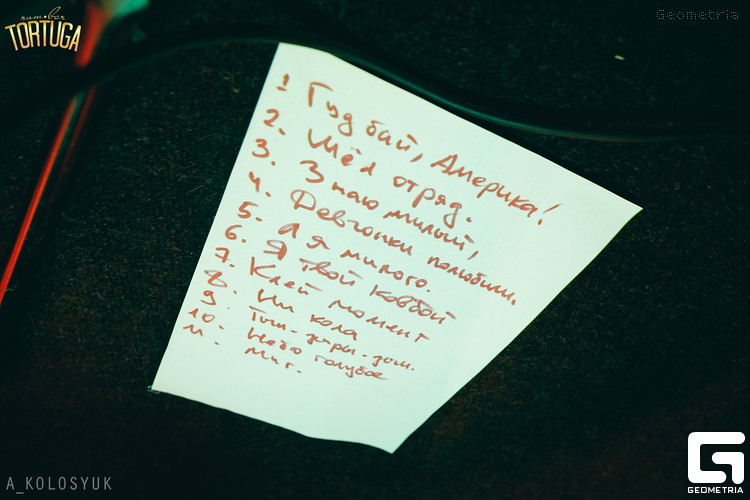 rum·bar
TORTUGA
Geometria
1 Гуд бай, Америка!
2. Шёл отряд.
3. Знаю милый,
4. Девчонки полюбили.
5. А я милого.
6. Я твой ковбой
7. Клей момент
8. Ни кола
9. Тыц-дыры-дыц.
10. Небо голубое
11. Миг.
A_KOLOSYUK
GEOMETRIA